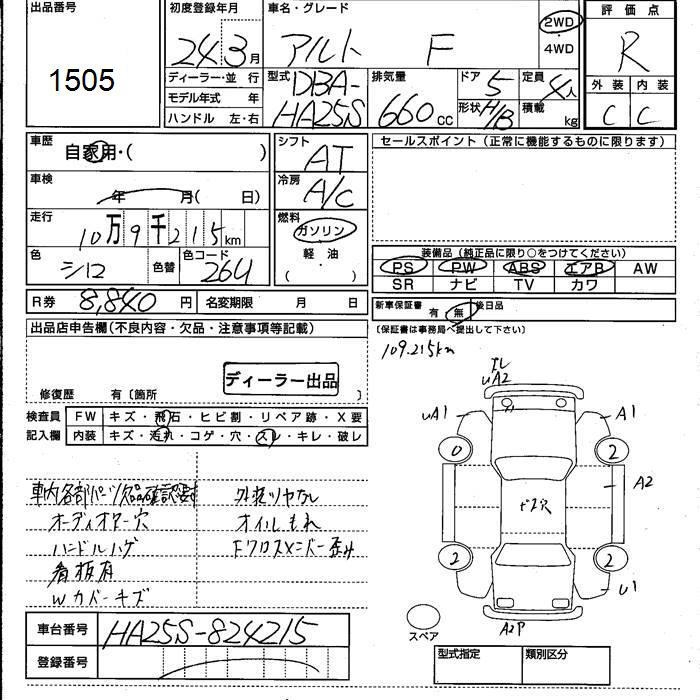 出品番号
1505
初度登録年月
24 3月
ディーラー・並 行
モデル年式 年
ハンドル 左・右
車名・グレード
アルト F
2WD
・
4WD
型式 DBA-
HA25S
排気量
660cc
ドア 5
形状 H/B
定員 4人
積載 kg
評価点
R
外装 内装
C C
車歴
自家用・( )
車検
年 月( 日)
走行
10万9千215km
色
シロ
色替
色コード
26U
シフト
AT
冷房
A/C
燃料
ガソリン
軽・油
( )
セールスポイント(正常に機能するものに限ります)
装備品(純正品に限り○をつけてください)
PS PW ABS エアB AW
SR ナビ TV カワ
R券 8,840 円 名変期限 月 日
新車保証書 有 無 後日品
(保証書は事務局へ提出して下さい)
出品店申告欄(不良内容・欠品・注意事項等記載)
ディーラー出品
修復歴 有〔箇所 〕
109.215km
検査員
記入欄
FW キズ・飛石・ヒビ割・リペア跡・X要
内装 キズ・汚れ・コゲ・穴・スレ・キレ・破レ
車内各部パーツ欠品確認要
オーディオマー穴
ハンドルハゲ
看板有
Wカバーキズ
外装ツヤなし
オイルもれ
Fクロスメンバー歪み
uA2
uA1
A1
0
2
A2
2
2
u1
A2P
スペア
車台番号 HA25S-824215
登録番号
型式指定 類別区分